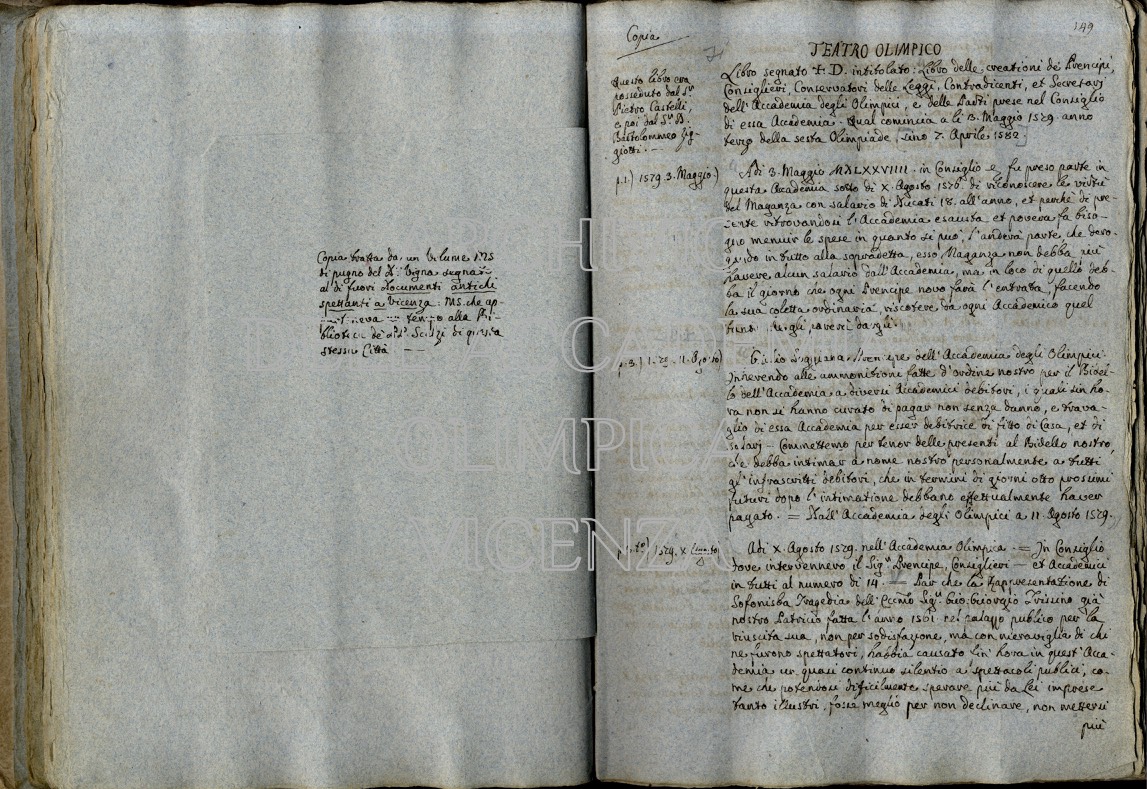 Copia tratta da un Volume MS
di pugno del K.r Vigna segnato
al di fuori Documenti antichi
spettanti a Vicenza: MS. che ap-
neva tempo alla Bi-
blioteca de' di questa
stessa Città —
149
Copia
TEATRO OLIMPICO
Questo libro era
posseduto dal S.r
Pietro Castelli,
e poi dal S.r D.
Bartolommeo Zig-
giotti. —
Libro segnato + D. intitolato: Libro delle creationi de' Prencipi,
Consiglieri, Conservatori delle Leggi, Contradicenti, et Secretarj
dell'Accademia degli Olimpici, e delle Parti prese nel Consiglio
di essa Accademia. Qual comincia a li 3. Maggio 1579. anno
terzo della sesta Olimpiade, sino 7. Aprile 1582.
p.1.) 1579. 3. Maggio.)
Adi 3. Maggio MDLXXVIIII. in Consiglio fu preso parte in
questa Academia sotto di X. Agosto 1576. di riconoscere le virtù
del Maganza con salario di Ducati 18. all'anno, et perchè di pre-
sente ritrovandosi l'Accademia esausta et povera fa biso-
gno menuir le spese in quanto si può, l'anderà parte che dero-
gando in tutto alla sopradetta, esso Maganza non debba più
havere alcun salario dall'Accademia, ma in loco di quello deb-
ba il giorno che ogni Prencipe novo farà l'entrata, facendo
la sua coletta ordinaria, riscotere da ogni Academico quel
p.3.)
dell'Accademia degli Olimpici.
Inherendo alle ammonitioni fatte d'ordine nostro per il Bidel-
lo dell'Accademia a diversi Accademici debitori, i quali sin ho-
ra non si hanno curato di pagar non senza danno, e trava-
glio di essa Accademia per esser debitrice di fitto di Casa, et di
salarj — Commettemo per tenor delle presenti al Bidello nostro,
che debba intimar a nome nostro personalmente a tutti
gl'infrascritti debitori, che in termini di giorni otto prossimi
futuri dopo l'intimatione debbano effettualmente haver
pagato. = Dall'Accademia degli Olimpici a 11. Agosto 1579.
1579. X. Agosto)
Adi X. Agosto 1579. nell'Accademia Olimpica. = In Consiglio
dove intervennero il Sig.r Prencipe, Consiglieri — et Academici
in tutti al numero di 14. — Par che la Rappresentazione di
Sofonisba Tragedia dell'Eccmo Sig.r Gio: Giorgio Trissino già
nostro Patricio fatta l'anno 1561. nel palazzo publico per la
riuscita sua, non per sodisfazione, ma con meraviglia di chi
ne furono spettatori, habbia causato sin' hora in quest'Acca-
demia un quasi continuo silentio a' spettacoli publici, co-
me che potendosi dificilmente sperare più da lei imprese
tanto illustri, fosse meglio per non declinare, non mettersi
più
ARCHIVIO
ACCADEMIA
OLIMPICA
VICENZA